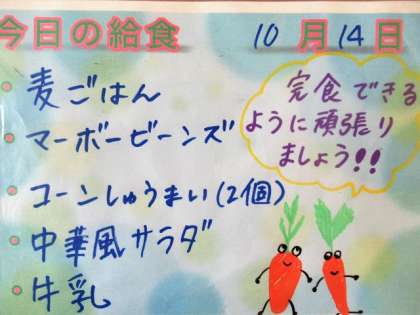 今日の給食 10月14日
麦ごはん
マーボービーンズ
コーンしゅうまい(2個)
中華風サラダ
牛乳
完食できる
ように頑張り
ましょう!!